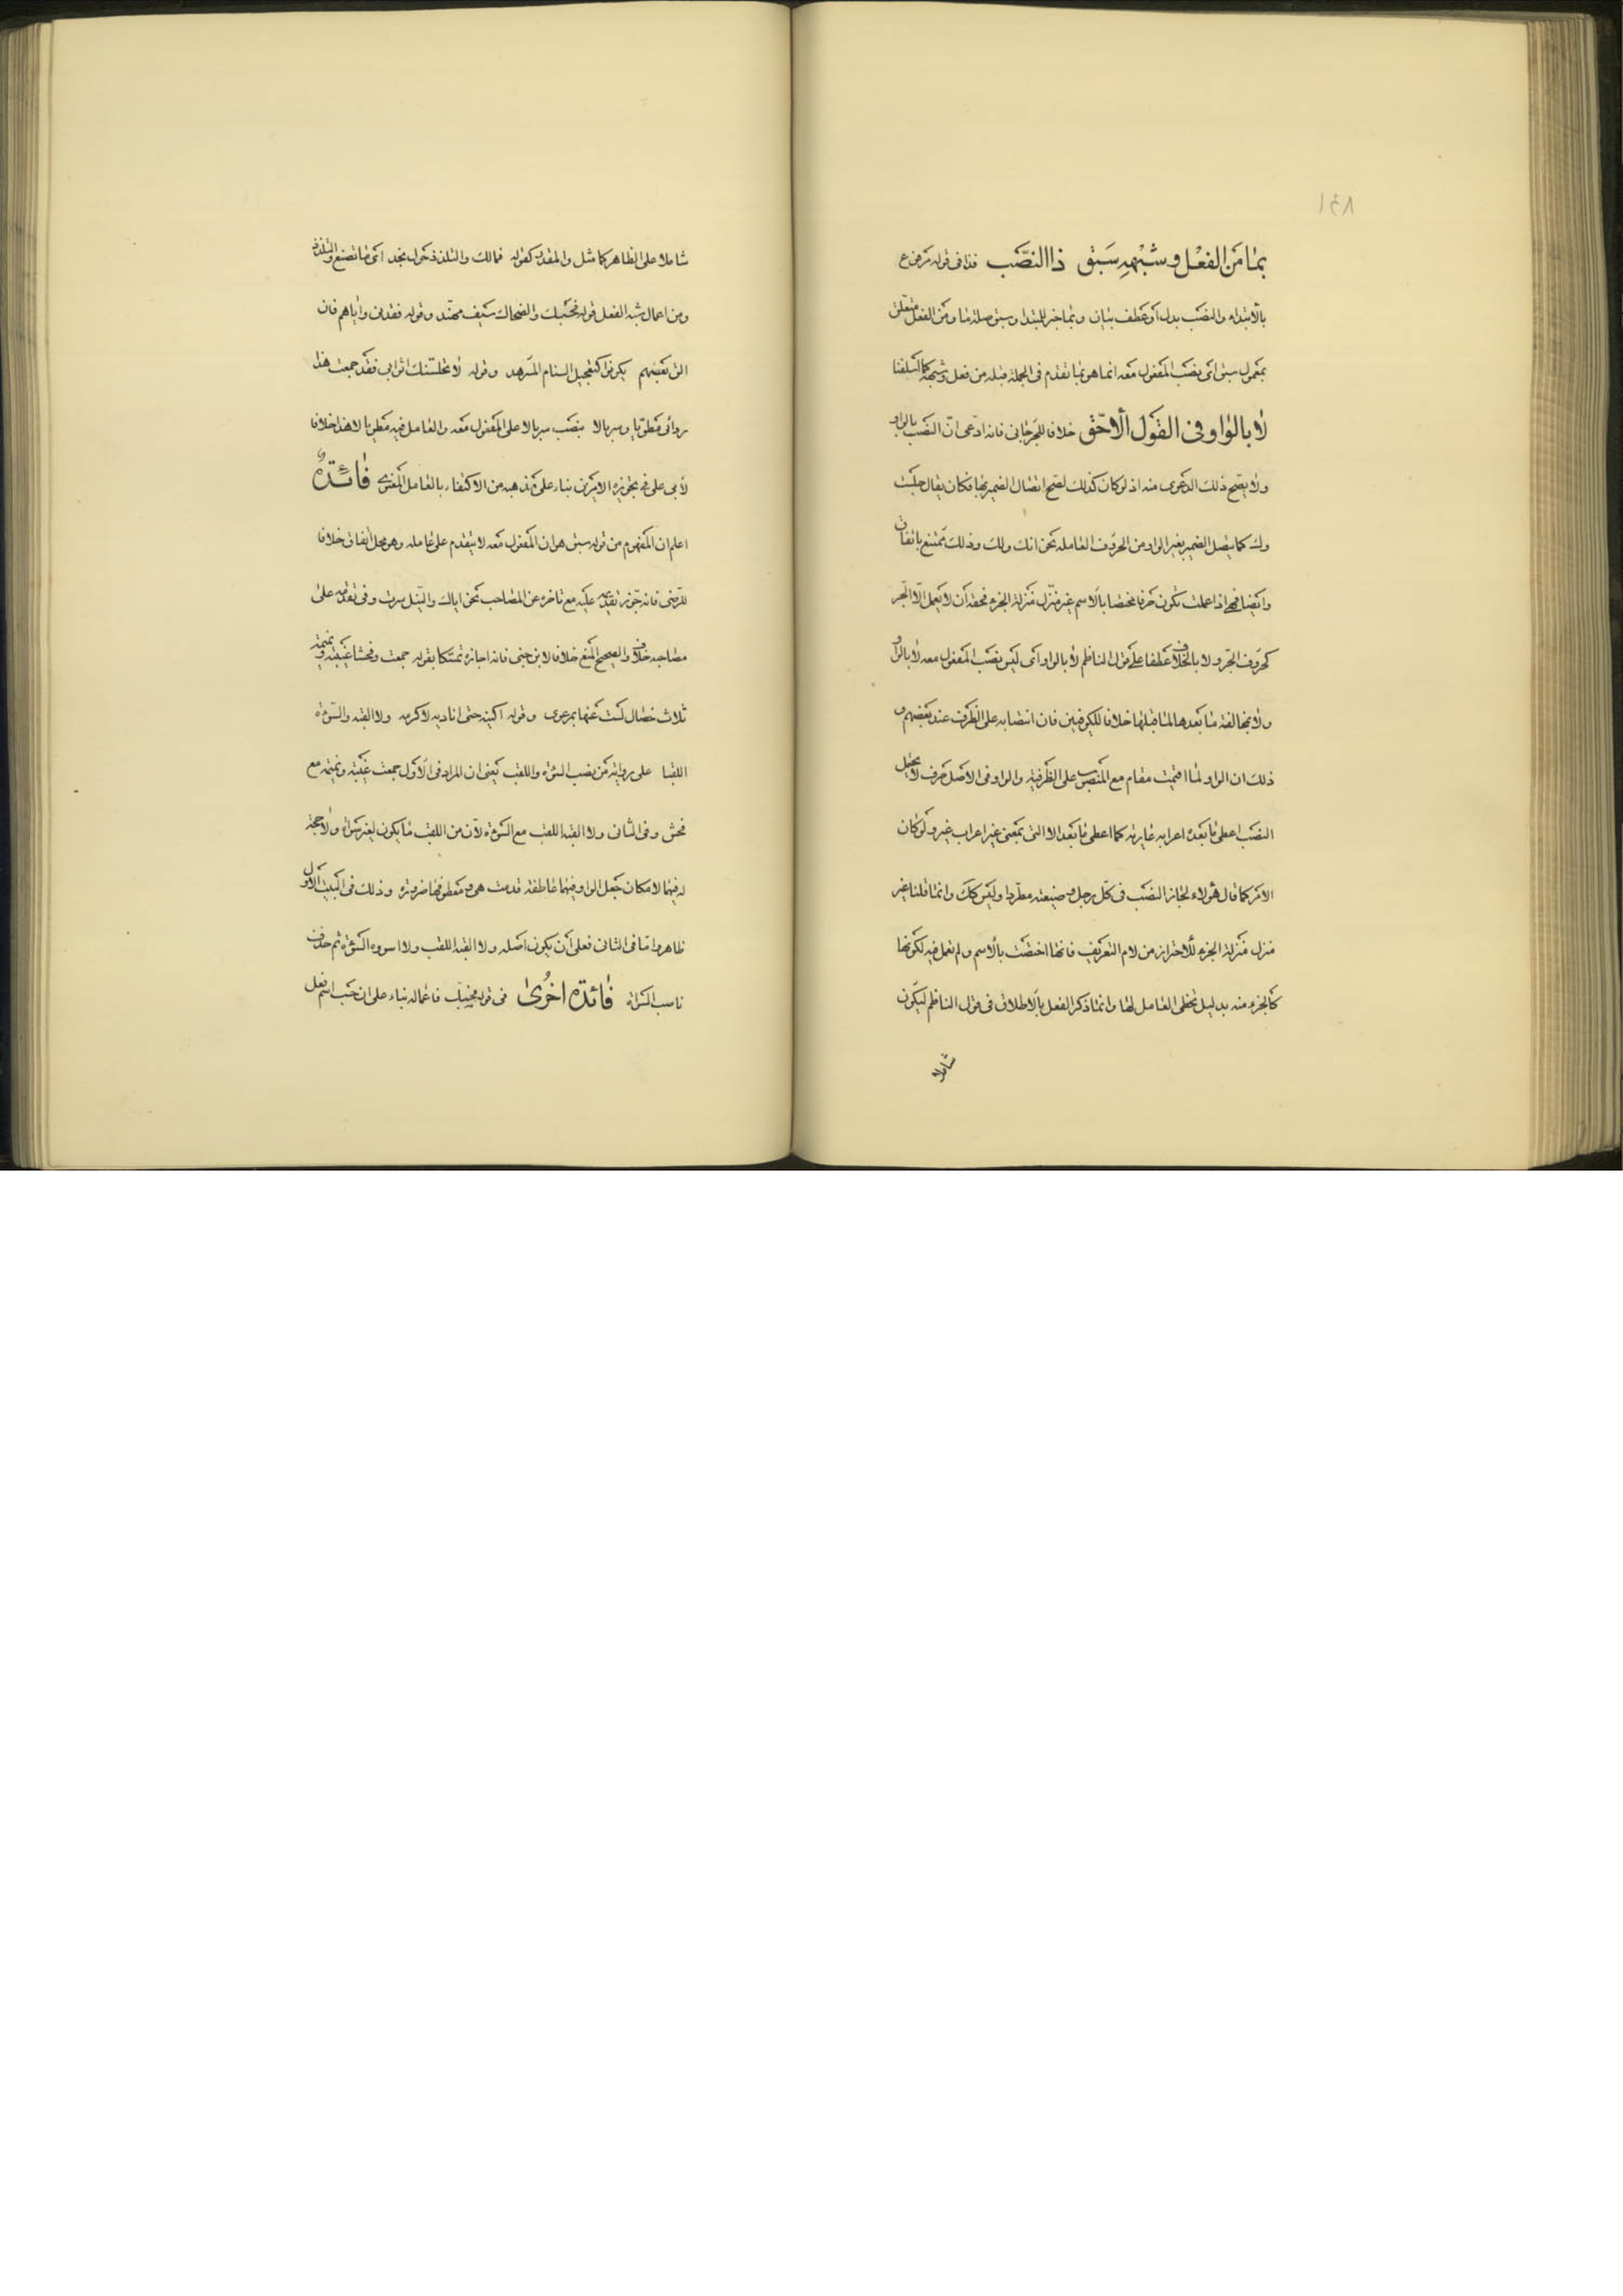 ١٤٨
بما من الفعل وشبهه سبق ذا النصب فذا فى قوله مرفوع
بالابتداء والنصب بدل أو عطف بيان وبما خبر للمبتدا وسبق صلة ما ومن الفعل متعلق
بمعمول سبق اى نصب المفعول معه انما هو بما تقدم فى الجملة قبله من فعل وشبهه كما اسلفنا
لا بالواو فى القول الأحق خلافا للجرجانى فانه ادعى ان النصب بالواو
ولا يصح ذلك الدعوى منه اذ لو كان كذلك لصح اتصال الضمير بها فكان يقال جلست
وك كما يتصل الضمير بغير الواو من الحروف العامله نحو انك ولك وذلك ممتنع باتفاق
وايضا فهى اذا عملت تكون حرفا مختصا بالاسم غير منزل منزلة الجزء فحقه ان لا يعمل الا الجر
كحروف الجر ولا بالخلاف عطفا على قول الناظم لا بالواو اى ليس نصب المفعول معه لا بالواو
ولا بمخالفة ما بعدها لما قبلها خلافا للكوفيين فان انتصابه على الظرف عند بعضهم و
ذلك ان الواو لما اقيمت مقام مع المنصوب على الظرفية والواو فى الاصل حرف لا يحتمل
النصب اعطى ما بعده اعرابه عارية كما اعطى ما بعد الا التى بمعنى غير اعراب غير ولو كان
الامر كما قال هولاء لجاز النصب فى كل رجل وضيعته مطردا وليس كك وانما قلنا غير
منزل منزلة الجزء للاحتراز من لام التعريف فانها اختصت بالاسم ولم تعمل فيه لكونها
كالجزء منه بدليل تخطى العامل لها وانما ذكر الفعل بالاطلاق فى قول الناظم ليكون
شاملا
شاملا على الظاهر كما مثل والمقدر كقوله فمالك والتلذذ حول نجد اى ما تصنع والتلذذ
ومن اعمال شبه الفعل قوله فحسبك والضحاك سيف مهند وقوله فقدنى واياهم فان
الق بعضهم يكونوا كتعجيل السنام المسرهد وقوله لا تحبسنك اثوابى فقد جمعت هذا
ردائى مطويا وسربالا بنصب سربالا على المفعول معه والعامل فيه مطويا لا هذا خلافا
لابى على فى تجويزه الامرين بناء على مذهبه من الاكتفاء بالعامل المعنوى فائدة
اعلم ان المفهوم من قوله سبق هو ان المفعول معه لا يتقدم على عامله وهو محل اتفاق خلافا
للرضى فانه جوز تقديمه عليه مع تاخره عن المصاحب نحو اياك والنيل سرت وفى تقدمه على
مصاحبه خلاف والصحيح المنع خلافا لابن جنى فانه اجازه تمسكا بقوله جمعت وفحشا غيبة ونميمة
ثلاث خصال لست عنها بمرعوى وقوله اكنيه حتى اناديه لاكرمه ولا القبه والسوءة
اللقبا على رواية من نصب السوءة واللقب يعنى ان المراد فى الاول جمعت غيبة ونميمة مع
فحش وفى الثانى ولا القبه اللقب مع السوءة لان من اللقب ما يكون لغير سواة ولا حجة
له فيهما لامكان جعل الواو فيهما عاطفة قدمت هى ومعطوفها ضرورة وذلك فى البيت الاول
ظاهر واما فى الثانى فعلى ان يكون اصله ولا القبه اللقب ولا اسوءه السوءة ثم حذف
ناصب السواة فائدة اخرى فى قوله فحسبك فاعماله بناء على ان حسب اسم فعل